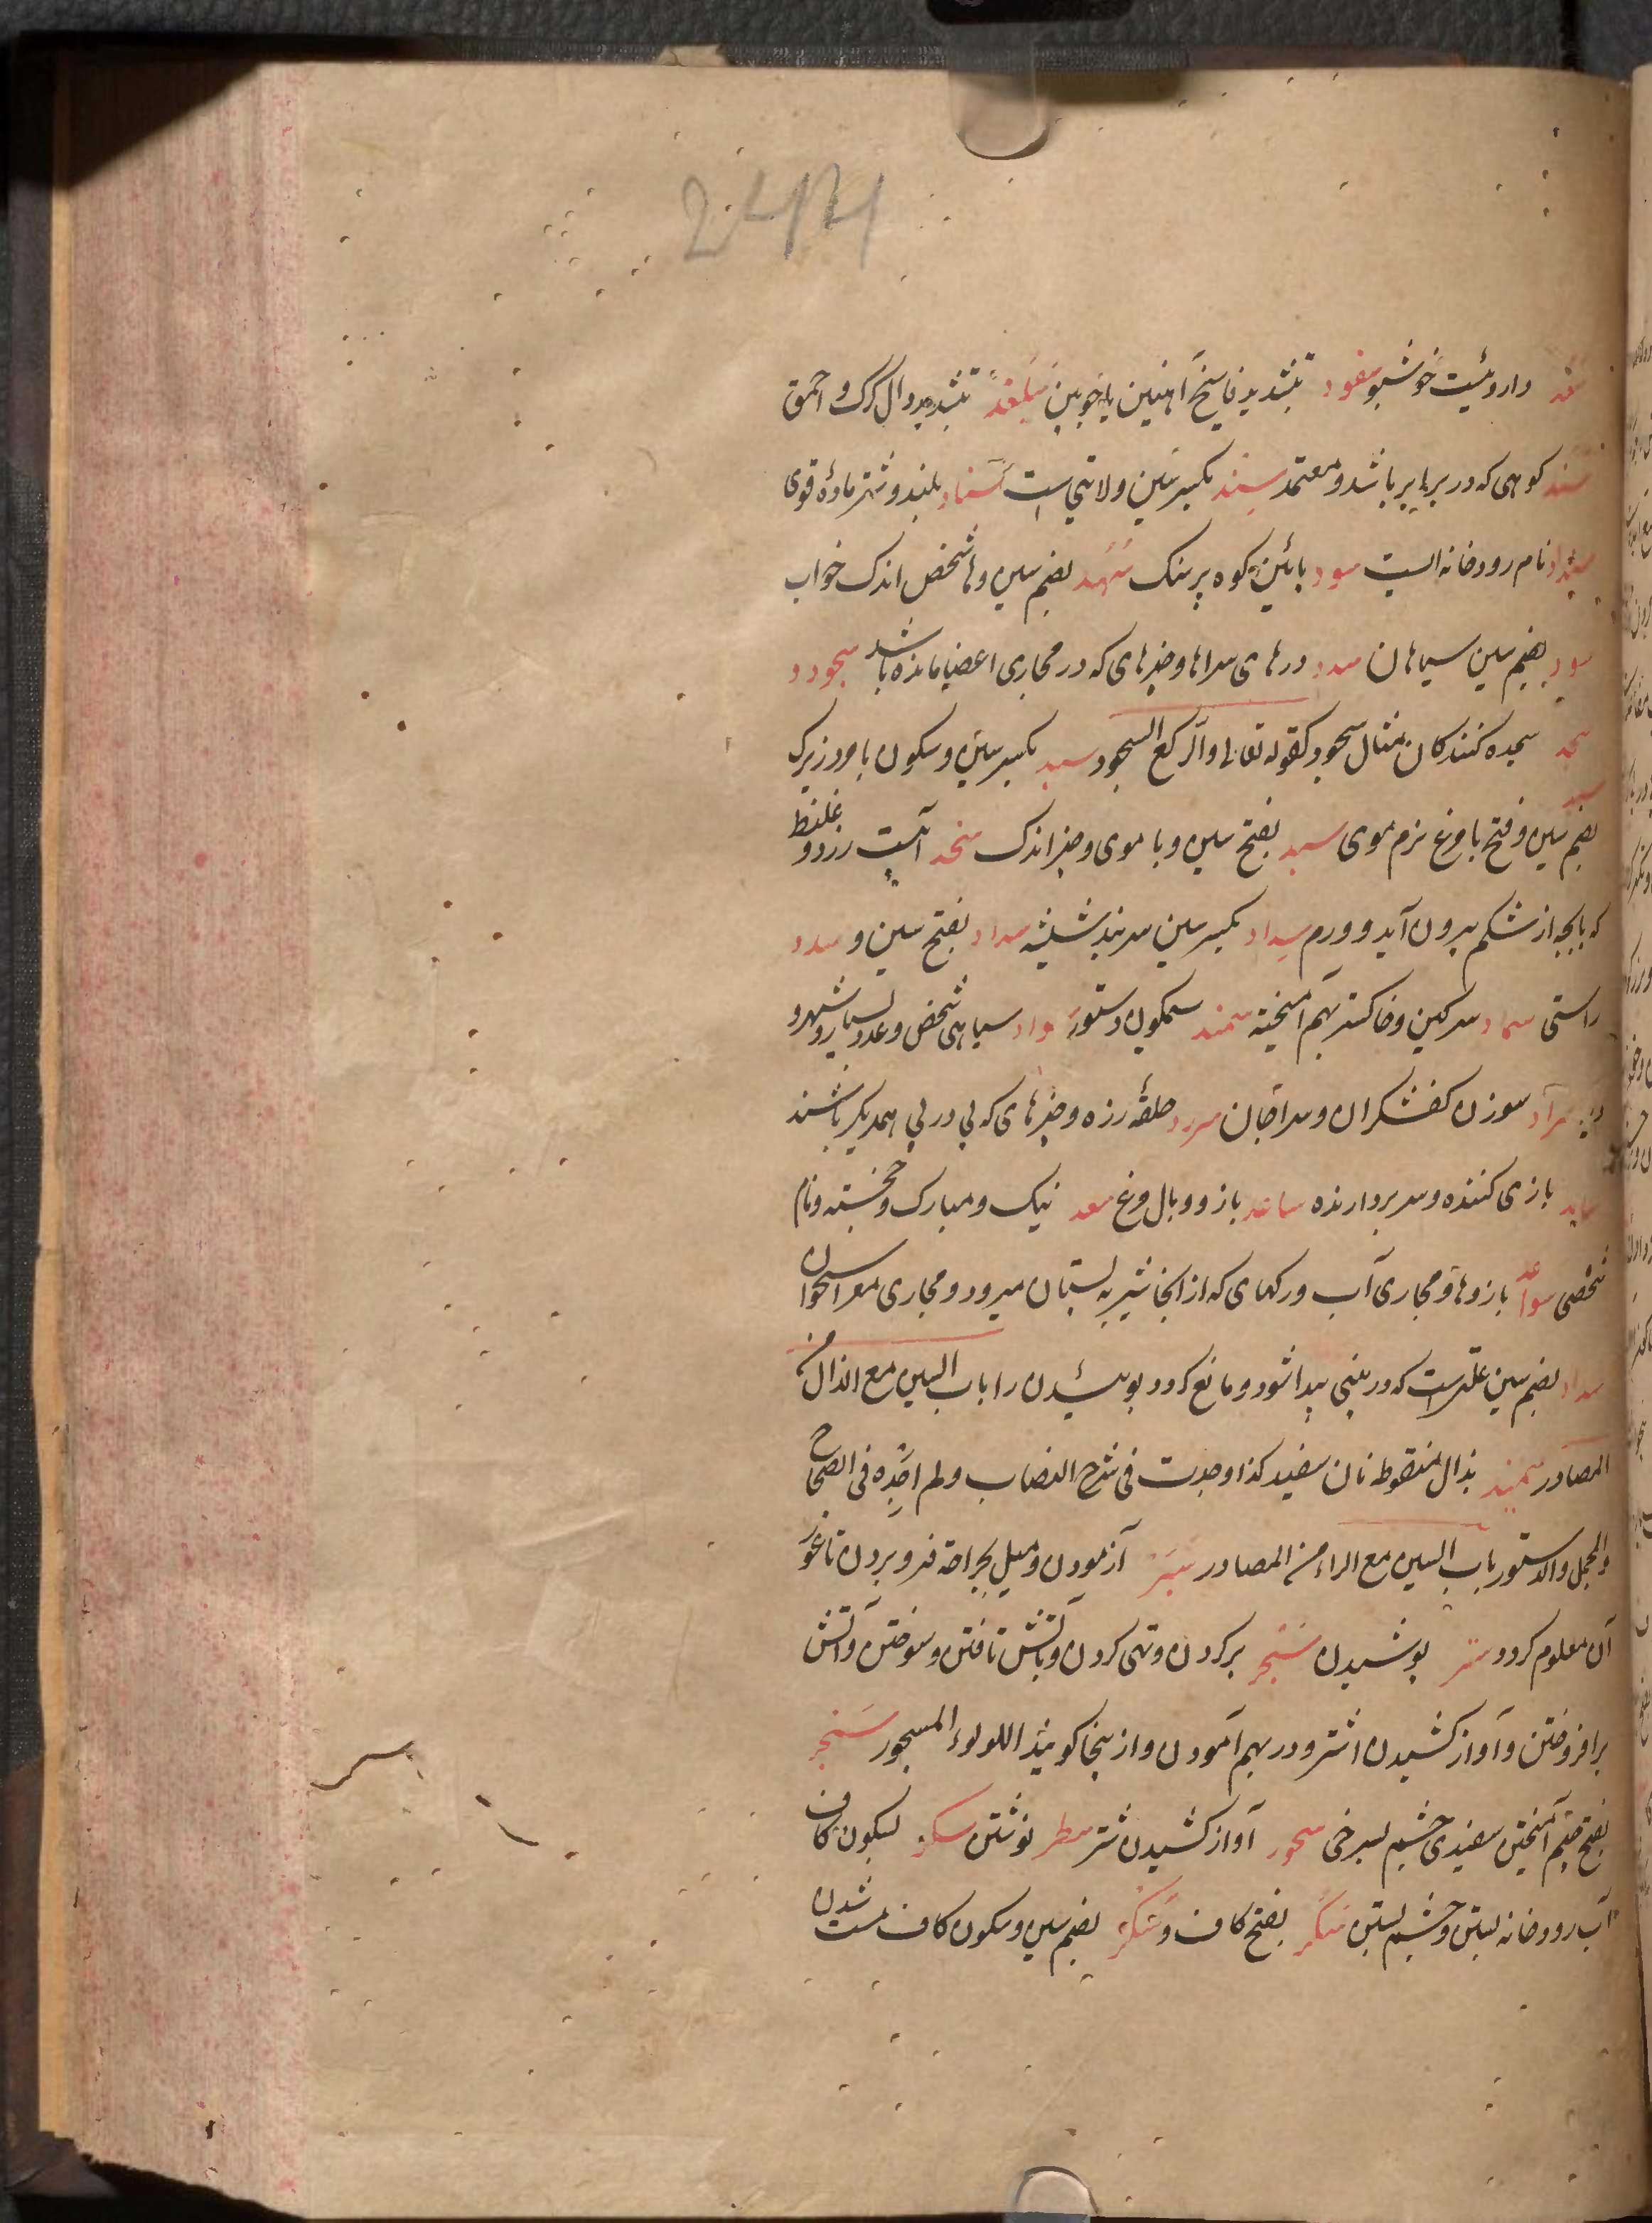 244
سعد داروئیست خوشبو سفود بتشدید فا سیخ آهنین یا چوبین سلغد بتشدید دال کرک و احمق
سند کوهی که در برابر باشد و معتمد سند بکسر سین ولایتی است سناد بلند و شتر ماده قوی
نام رودخانه ایست سود پائین کوه پرسنک سهد بضم سین و ها شخص اندک خواب
سود بضم سین سیاهان سدد درهای سراها و چیزهای که در مجاری اعضا مانده باشد سجود و
سجد سجده کنندکان مثال سجود کقوله تعالی والرکع السجود سبد بکسر سین و سکون با مرد زیرک
سبد بضم سین و فتح با مرغ نرم موی سبد بفتح سین و با موی و چیز اندک سخد آبیست زرد و غلیظ
که با بچه از شکم بیرون آید و ورم سداد بکسر سین سربند شیشه سداد بفتح سین و سدد
راستی سماد سرکین و خاکستر بهم آمیخته سمند سمکون و ستور سواد سیاهی شخص و عدد بسیار و شهر و
ده سراد سوزن کفشکران و سراجان سرد حلقه زره و چیزهای که پی در پی همدیکر باشند
سامد بازی کننده و سر بردارنده ساعد بازو و بال مرغ سعد نیک و مبارک و خجسته و نام
شخصی سواعد بازوها و مجاری آب و رکهای که از انجا شیر به پستان میرود و مجاری مغز استخوان
سداد بضم سین علتیست که در بینی پیدا شود و مانع کردد بوئیدن را باب السین مع الذال من
المصادر سمیذ بذال منقوطه نان سفید کذا وجدت فی شرح النصاب و لم اجده فی الصحاح
والمجمل والدستور باب السین مع الراء من المصادر سبر آزمودن و میل بجراحة فرو بردن تا غور
آن معلوم کردد ستر پوشیدن سجر پر کردن و تهی کردن و بآتش تافتن و سوختن و آتش
برافروختن و آواز کشیدن اشتر و در بهم آمودن و از ینجا کویند اللولوء المسجور سجر
بفتح جیم آمیختن سفیدی چشم بسرخی سجور آواز کشیدن شتر سطر نوشتن سکر بسکون کاف
آب رودخانه بستن و چشم بستن سکر بفتح کاف و سکر بضم سین و سکون کاف مست شدن